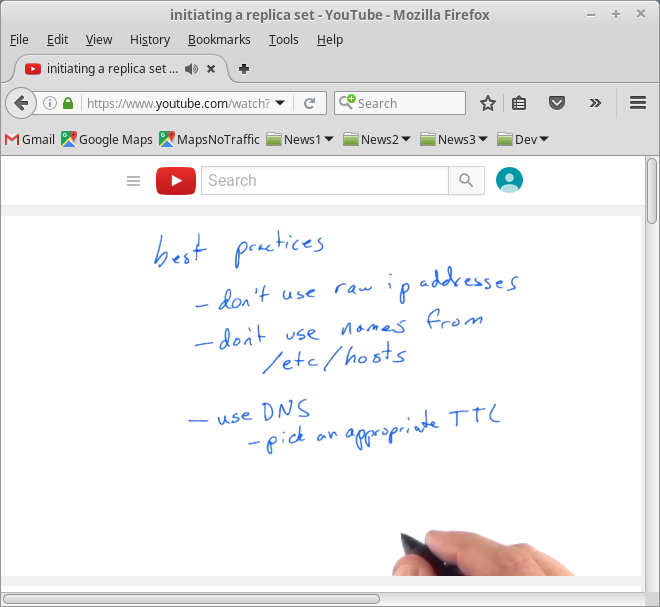 initiating a replica set - YouTube - Mozilla Firefox
File Edit View History Bookmarks Tools Help
initiating a replica set ...
https://www.youtube.com/watch? Search
Gmail Google Maps MapsNoTraffic News1 News2 News3 Dev
Search
best practices
- don't use raw ip addresses
- don't use names from
/etc/hosts
- use DNS
- pick an appropriate TTL